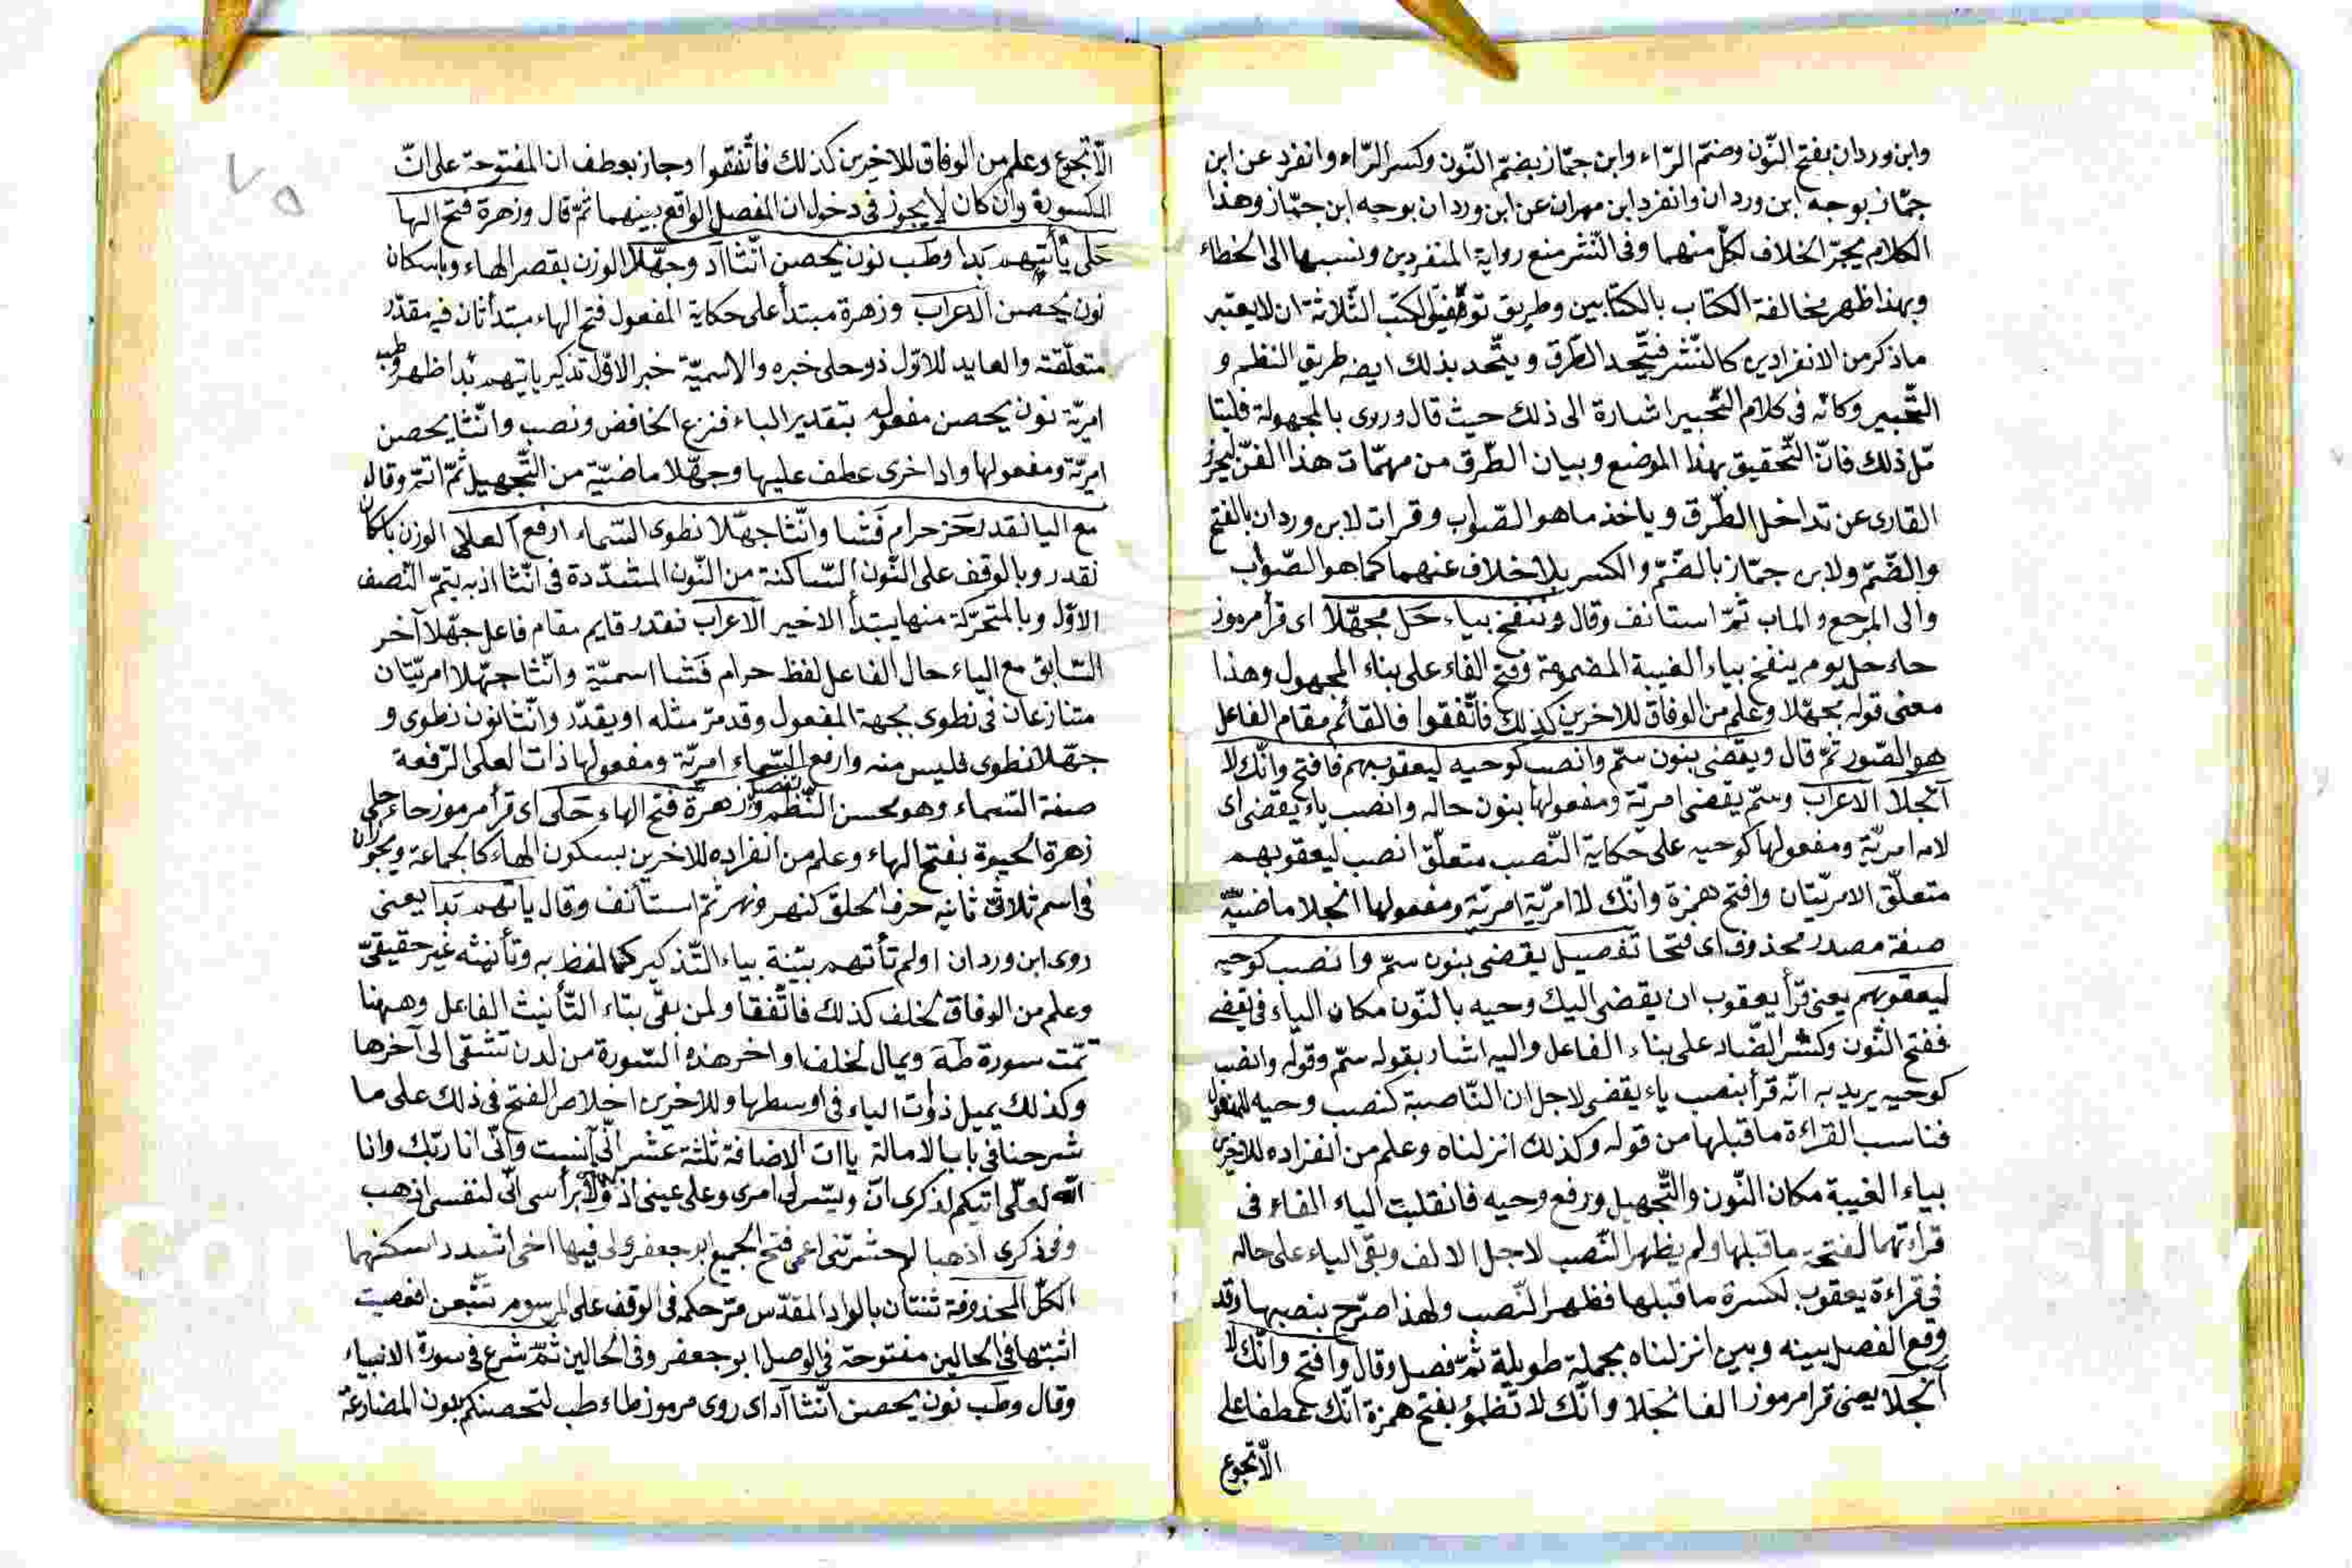 وابن وردان بفتح النّون وضمّ الرّاء وابن جمّاز بضمّ النّون وكسر الرّاء وانفرد عن ابن
جمّاز بوجه ابن وردان وانفرد ابن مهران عن ابن وردان بوجه ابن جمّاز وهذا
الكلام يجرّ الخلاف لكلّ منهما وفى النّشر منع رواية المنفردين ونسبها الى الخطاء
وبهذا ظهر مخالفة الكتاب بالكتابين وطريق توفيق الكتب الثّلاثة ان لا يعتبر
ماذكر من الانفرادين كالنّشر فيتّحد الطّرق ويتّحد بذلك ايضه طريق النظم و
التّحبير وكانّه فى كلام التّحبير اشارة الى ذلك حيث قال وروى بالمجهولة فليتا
مّل ذلك فانّ التّحقيق بهذا الموضع وبيان الطّرق من مهمّات هذا الفنّ ليحرز
القارى عن تداخل الطّرق وياخذ ماهو الصّواب وقرات لابن وردان بالفتح
والضّمّ ولابن جمّاز بالضّمّ والكسر بلا خلاف عنهما كما هو الصّواب
والى المرجع والماب ثمّ استانف وقال وننفخ بياء حَل مجهّلا اى قرأ مرموز
حاء حل يوم ينفخ بياء الغيبة المضمومة وفتح الفاء على بناء المجهول وهذا
معنى قوله مجهّلا وعلم من الوفاق للاخرين كذلك فاتّفقوا فالقائم مقام الفاعل
هو الصّور ثمّ قال ويقضى بنون سمّ وانصب كوحيه ليعقوبهم فافتح وانّك لا
انجلا الاعراب وسمّ يقضى امريّة ومفعولها بنون حاله وانصب ياء يقضى اى
لامه امريّة ومفعولها كوحيه على حكاية النّصب متعلّق انصب ليعقوبهم
متعلّق الامريّتان وافتح همزة وانّك لا امريّة امريّة ومفعولها انجلا ماضيّة
صفة مصدر محذوف اى فتحا تفصيل يقضى بنون سمّ وانصب كوحيه
ليعقوبهم يعنى قرأ يعقوب ان يقضى اليك وحيه بالنّون مكان الياء فى يقضى
ففتح النّون وكسر الضّاد على بناء الفاعل واليه اشار بقوله سمّ وقوله وانصب
كوحيه يريد به انّه قرأ بنصب ياء يقضى لاجل ان النّاصبة كنصب وحيه للمفعول
فناسب القراءة ماقبلها من قوله وكذلك انزلناه وعلم من انفراده للاخرين
بياء الغيبة مكان النّون والتّجهيل ورفع وحيه فانقلبت الياء الفاء فى
قراءتهما لفتحة ماقبلها ولم يظهر النّصب لاجل الالف وبقى الياء على حاله
فى قراءة يعقوب لكسرة ماقبلها فظهر النّصب ولهذا صرّح بنصبها وقد
وقع الفصل بينه وبين انزلناه بجملة طويلة ثمّ فصل وقال وافتح وانّك لا
انجلا يعنى قرا مرموز الف انجلا وانّك لا تظمؤ بفتح همزة انّك عطفا على
الّا تجوع
الّا تجوع وعلم من الوفاق للاخرين كذلك فاتّفقوا وجاز بعطف ان المفتوحة على انّ
المكسورة وان كان لا يجوز فى دخول ان المفصل الواقع بينهما ثمّ قال وزهرة فتح الها
حَلى يأتهم بَدا وطَب نون يحصن انّثا اَد وجهّلا الوزن بقصر الهاء وباسكان
نون يحصن الاعراب وزهرة مبتدأ على حكاية المفعول فتح الهاء مبتدأ ثان فيه مقدّر
متعلّقته والعايد للاوّل ذو حلى خبره والاسميّة خبر الاوّل تذكير ياتهم بدا ظهر وطب
امريّة نون يحصن مفعوله بتقدير الباء فنزع الخافض ونصب وانّثا يحصن
امريّة ومفعولها واد اخرى عطف عليها وجهّلا ماضيّة من التّجهيل ثمّ اتمّ وقال
مع اليا نقدر حَز حرام فَشا وانّثا جهّلا نطوى السّماء ارفع اَلعلا الوزن باسكان
نقدر وبالوقف على النّون السّاكنة من النّون المشدّدة فى انّثا اذ به يتمّ النّصف
الاوّل وبالمتحرّكة منها يبتدأ الاخير الاعراب نقدر قايم مقام فاعل جهّلا آخر
السّابق مع الياء حال الفاعل لفظ حرام فَشا اسميّة وانّثا جهّلا امريّتان
متنازعان فى نطوى بجهة المفعول وقد مرّ مثله او يقدّر وانّثا نون نطوى و
جهّلا نطوى فليس منه وارفع السّماء امريّة ومفعولها ذات العلى الرّفعة
صفة السّماء وهو محسن النّظم تفصيل وزهرة فتح الهاء حَلى اى قرأ مرموز حاء حلى
زهرة الحيوة بفتح الهاء وعلم من انفراده للاخرين بسكون الهاء كالجماعة ويجوزان
فى اسم ثلاثىّ ثانيه حرف الحلق كنهر ونهر ثمّ استأنف وقال ياتهم بَدا يعنى
روى ابن وردان اولم تأتهم بيّنة بياء التّذكير كما لفظ به وتأنيثه غير حقيقىّ
وعلم من الوفاق لخلف كذلك فاتّفقا ولمن بقى بتاء التّأنيث الفاعل وههنا
تمّت سورة طه ويمال لخلف اواخر هذه السّورة من لدن تشقى الى آخرها
وكذلك يميل ذوات الياء فى اوسطها وللاخرين اخلاص الفتح فى ذلك على ما
شرحنا فى باب الامالة ياات الاضافة ثلثة عشر انّى آنست وانّى انا ربّك وانا
الله لعلّى اتيكم لذكرى انّ ويسّر لى امرى وعلى عينى اذ ولا برأسى انّى لنفسى اذهب
وفى ذكرى اذهبا لم حشرتنى اعمى فتح الجميع ابو جعفر ولى فيها اخى اشدد اسكنهما
الكلّ المحذوفة ثنتان بالواد المقدّس مرّ حكمه فى الوقف على المرسوم تتّبعن افعصيت
اثبتها فى الحالين مفتوحة فى الوصل ابو جعفر وفى الحالين ثمّ شرع فى سورة الانبياء
وقال وطَب نون يحصن انّثا اَد اى روى مرموز طاء طب لتحصنكم بنون المضارعة